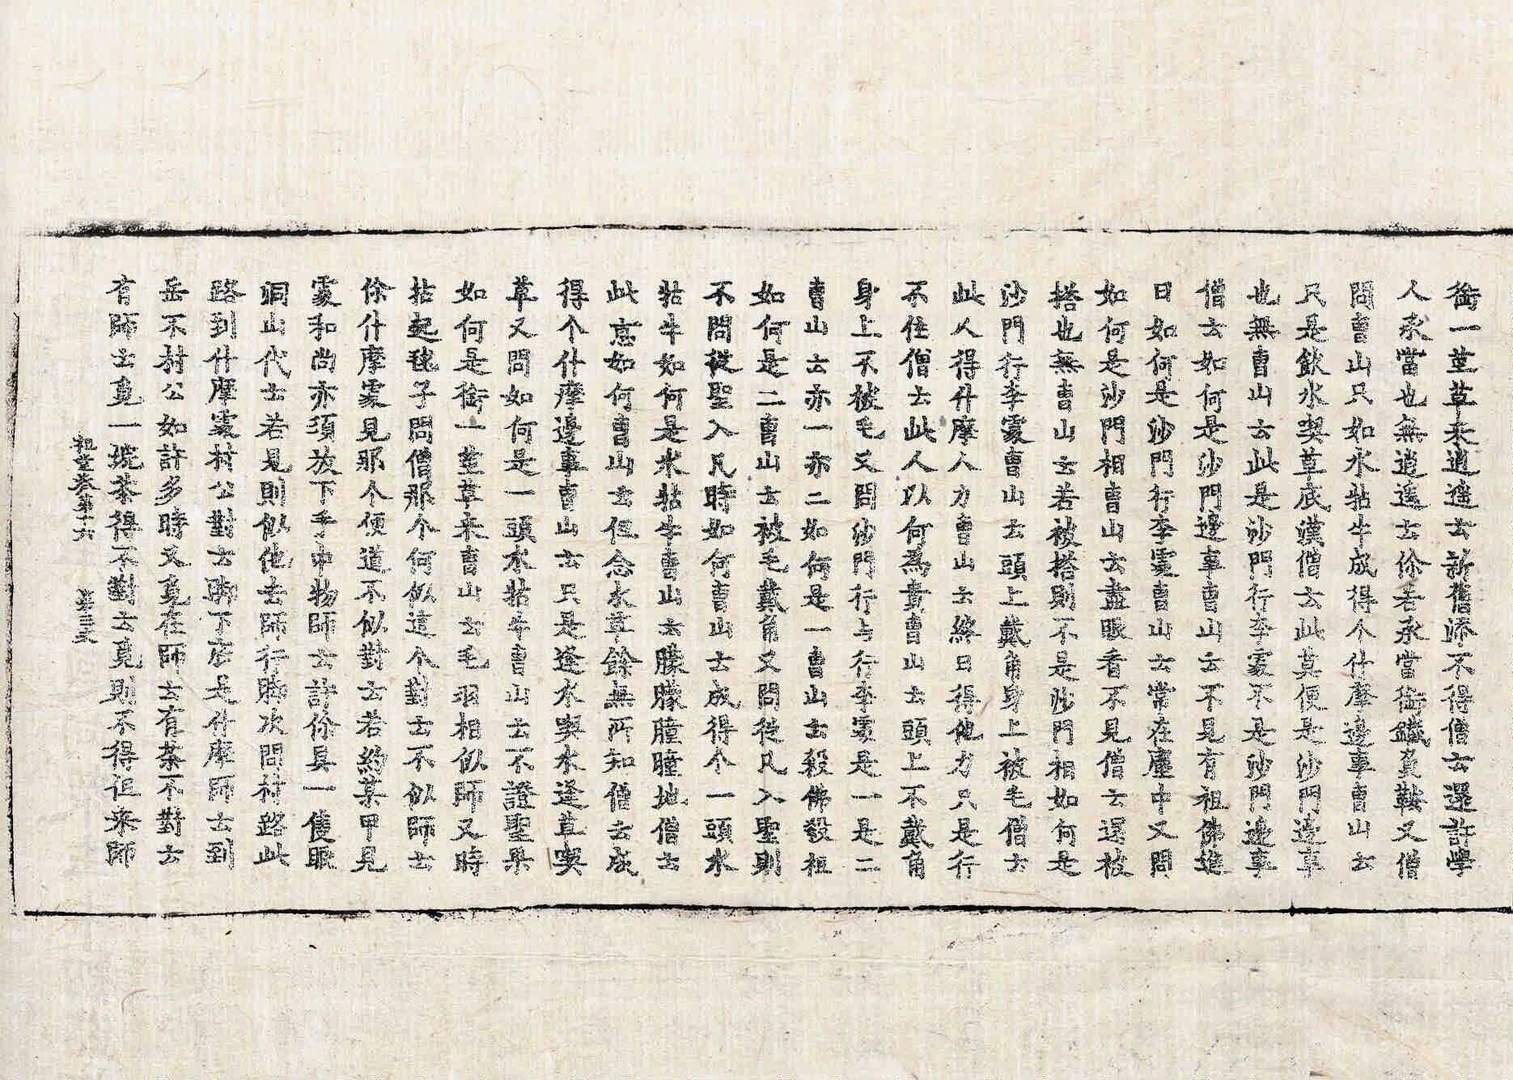 銜一莖草来逍遥去新舊添不得僧云還許學
人承當也無逍遥云你若承當銜鐵負鞍又僧
問曹山只如水牯牛成得个什摩邊事曹山云
只是飲水喫草底漢僧云此莫便是沙門邊事
也無曹山云此是沙門行李處不是沙門邊事
僧云如何是沙門邊事曹山云不見有祖佛進
曰如何是沙門行李處曹山云常在塵中又問
如何是沙門相曹山云盡眼看不見僧云還被
搭也無曹山云若被搭則不是沙門相如何是
沙門行李處曹山云頭上戴角身上被毛僧云
此人得什摩人力曹山云終日得他力只是行
不住僧云此人以何為貴曹山云頭上不戴角
身上不被毛又問沙門行与行李處是一是二
曹山云亦一亦二如何是一曹山云殺佛殺祖
如何是二曹山云被毛戴角又問從凡入聖則
不問從聖入凡時如何曹山云成得个一頭水
牯牛如何是水牯牛曹山云朦朦瞳瞳地僧云
此意如何曹山云但念水草餘無所知僧云成
得个什摩邊事曹山云只是逢水喫水逢草喫
草又問如何是一頭水牯牛曹山云不證聖果
如何是銜一莖草来曹山云毛羽相似師又時
拈起毬子問僧那个何似這个對云不似師云
你什摩處見那个便道不似對云若約某甲見
處和尚亦須放下手中物師云許你具一隻眼
洞山代云若見則似他去師行脚次問村路此
路到什摩處村公對云脚下底是什摩師云到
岳不村公如許多時又覓在師云有茶不對云
有師云覓一垸茶得不對云覓則不得但来師
祖堂卷第十六　第三丈